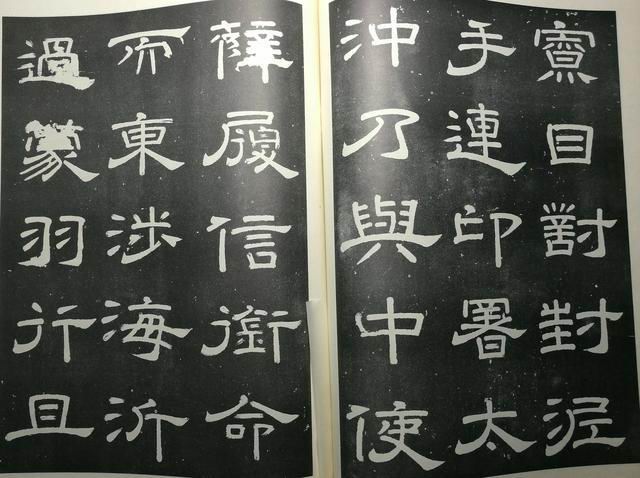 寮目對封泥
手連印署太
沖乃與中使
薛履信銜命
而東涉海沂
過蒙羽行且